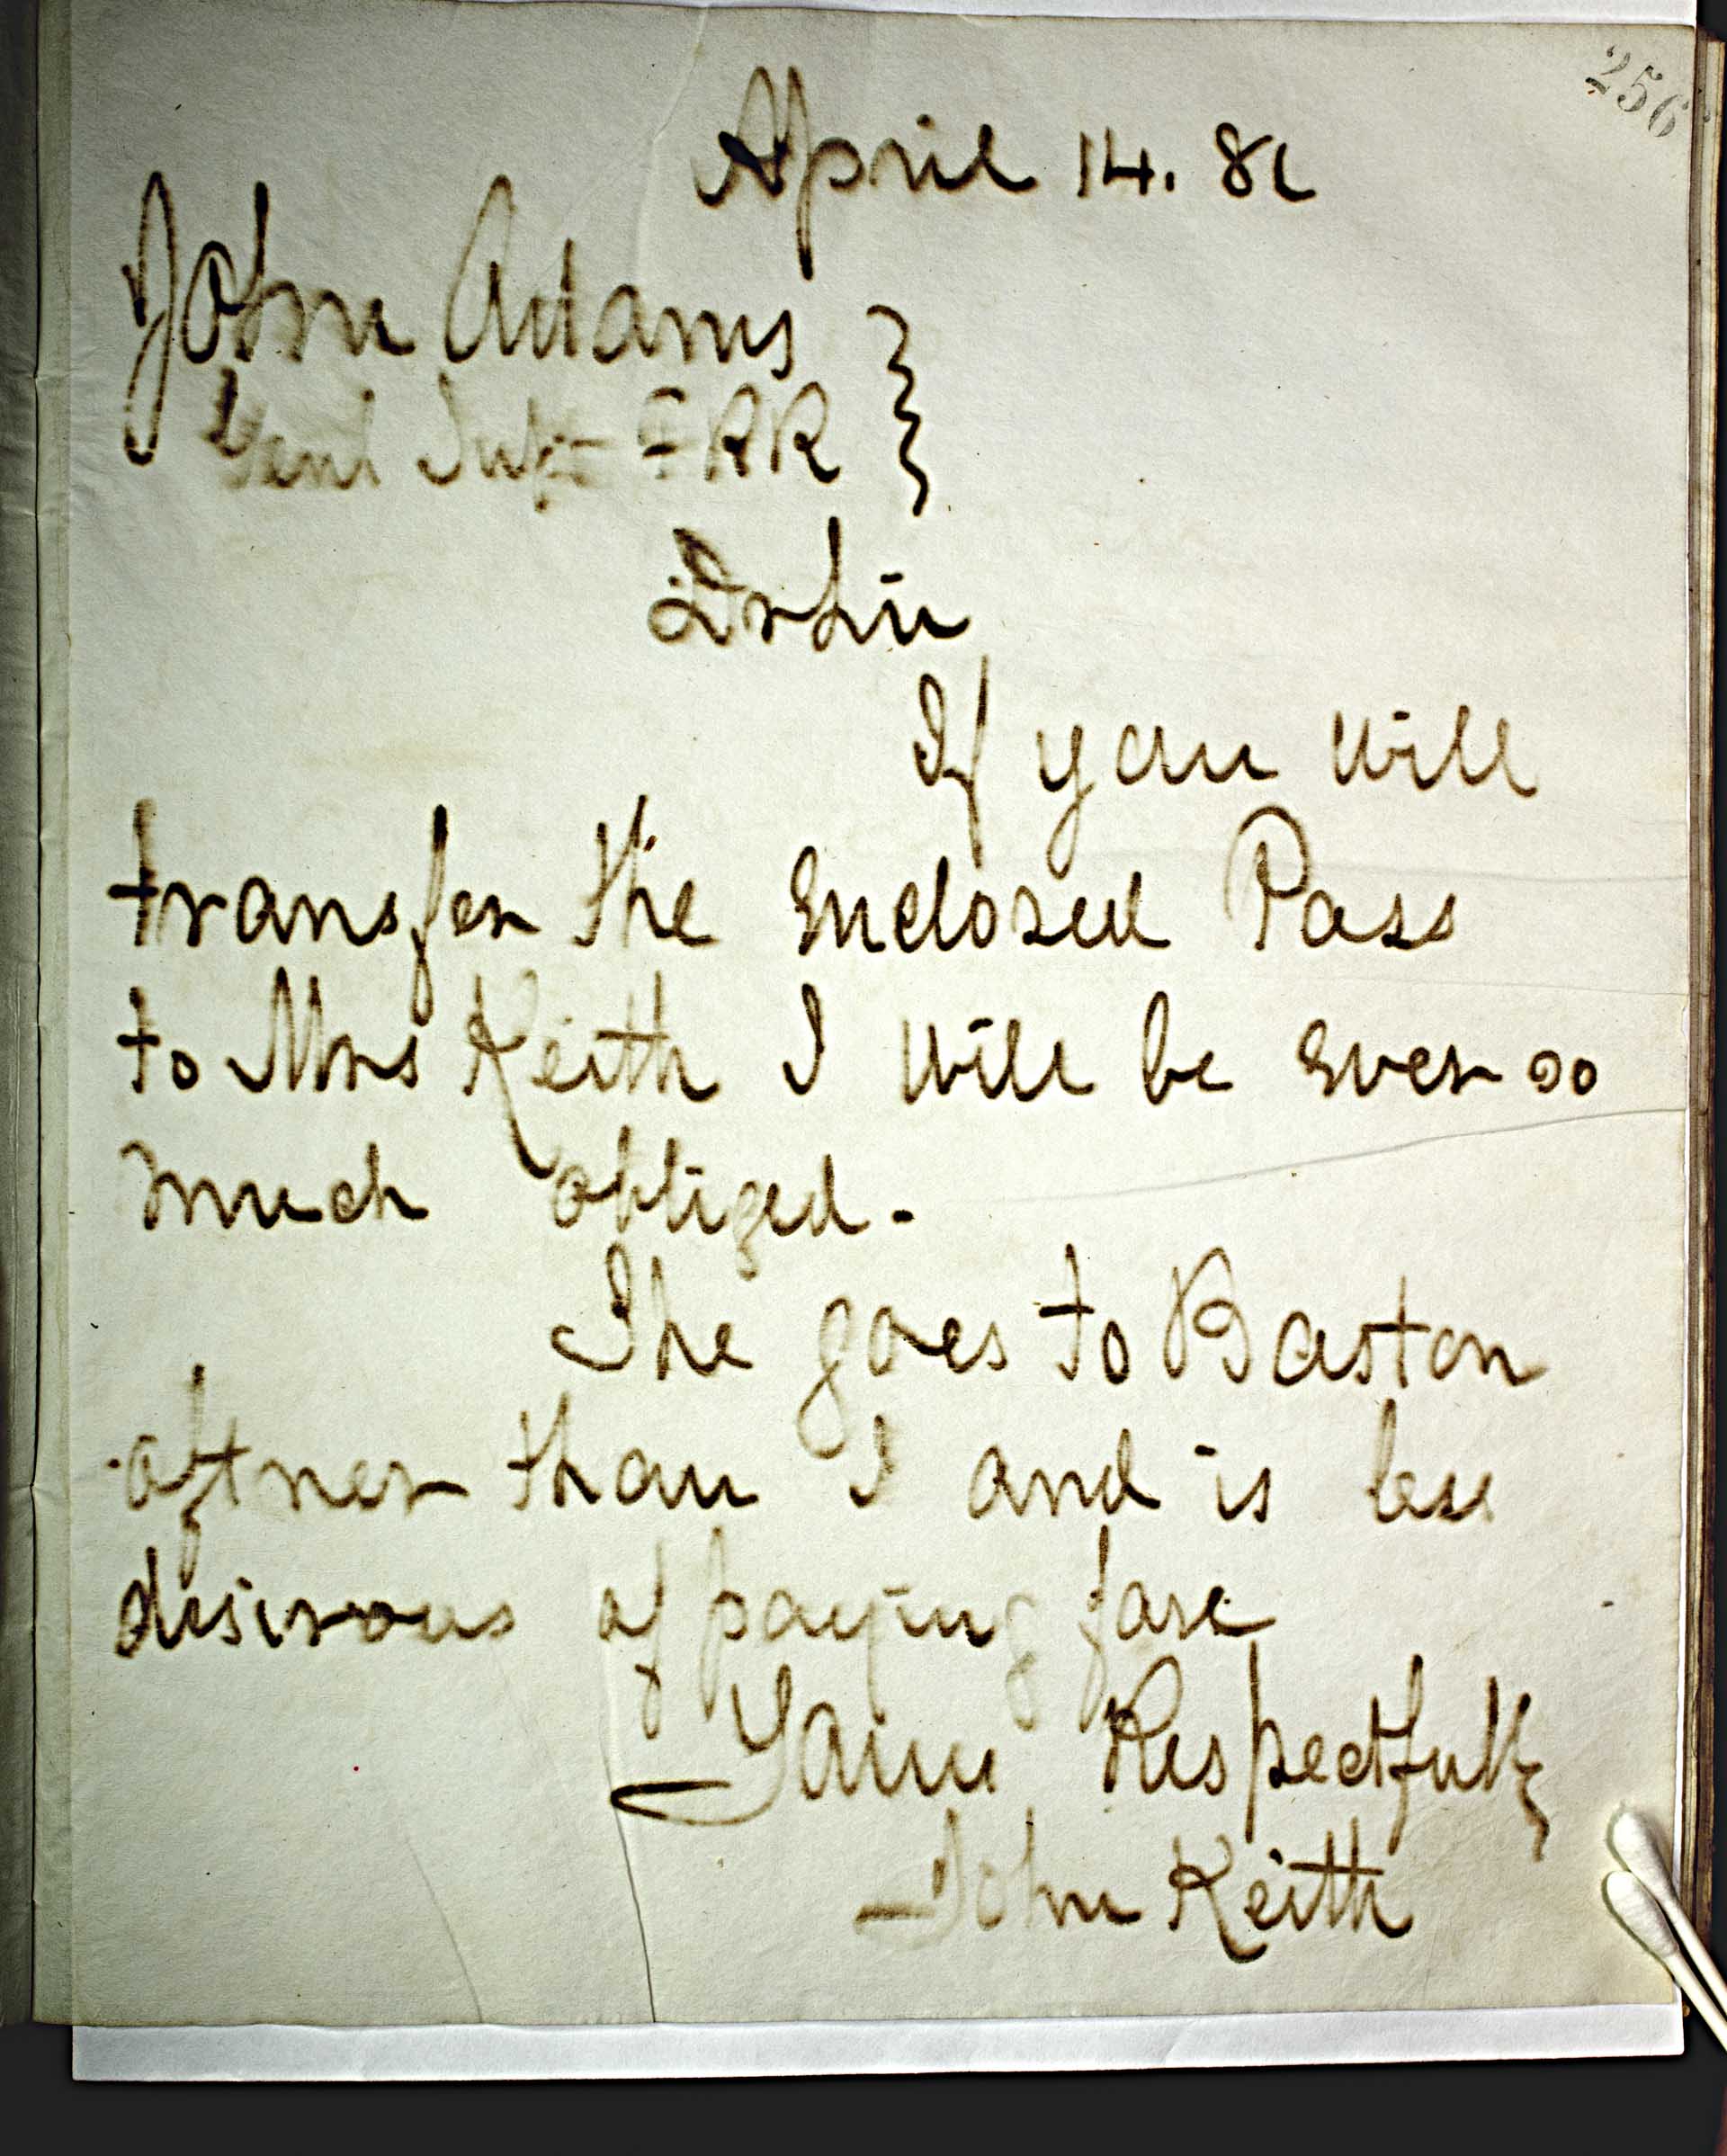 256
April 14. 81
John Adams
Genl Supt F RR
Dr Sir
If you will
transfer the Enclosed Pass
to Mrs Keith I will be Ever so
much obliged.
She goes to Boston
oftner than I and is less
desirous of paying fare
Yours Respectfully
John Keith